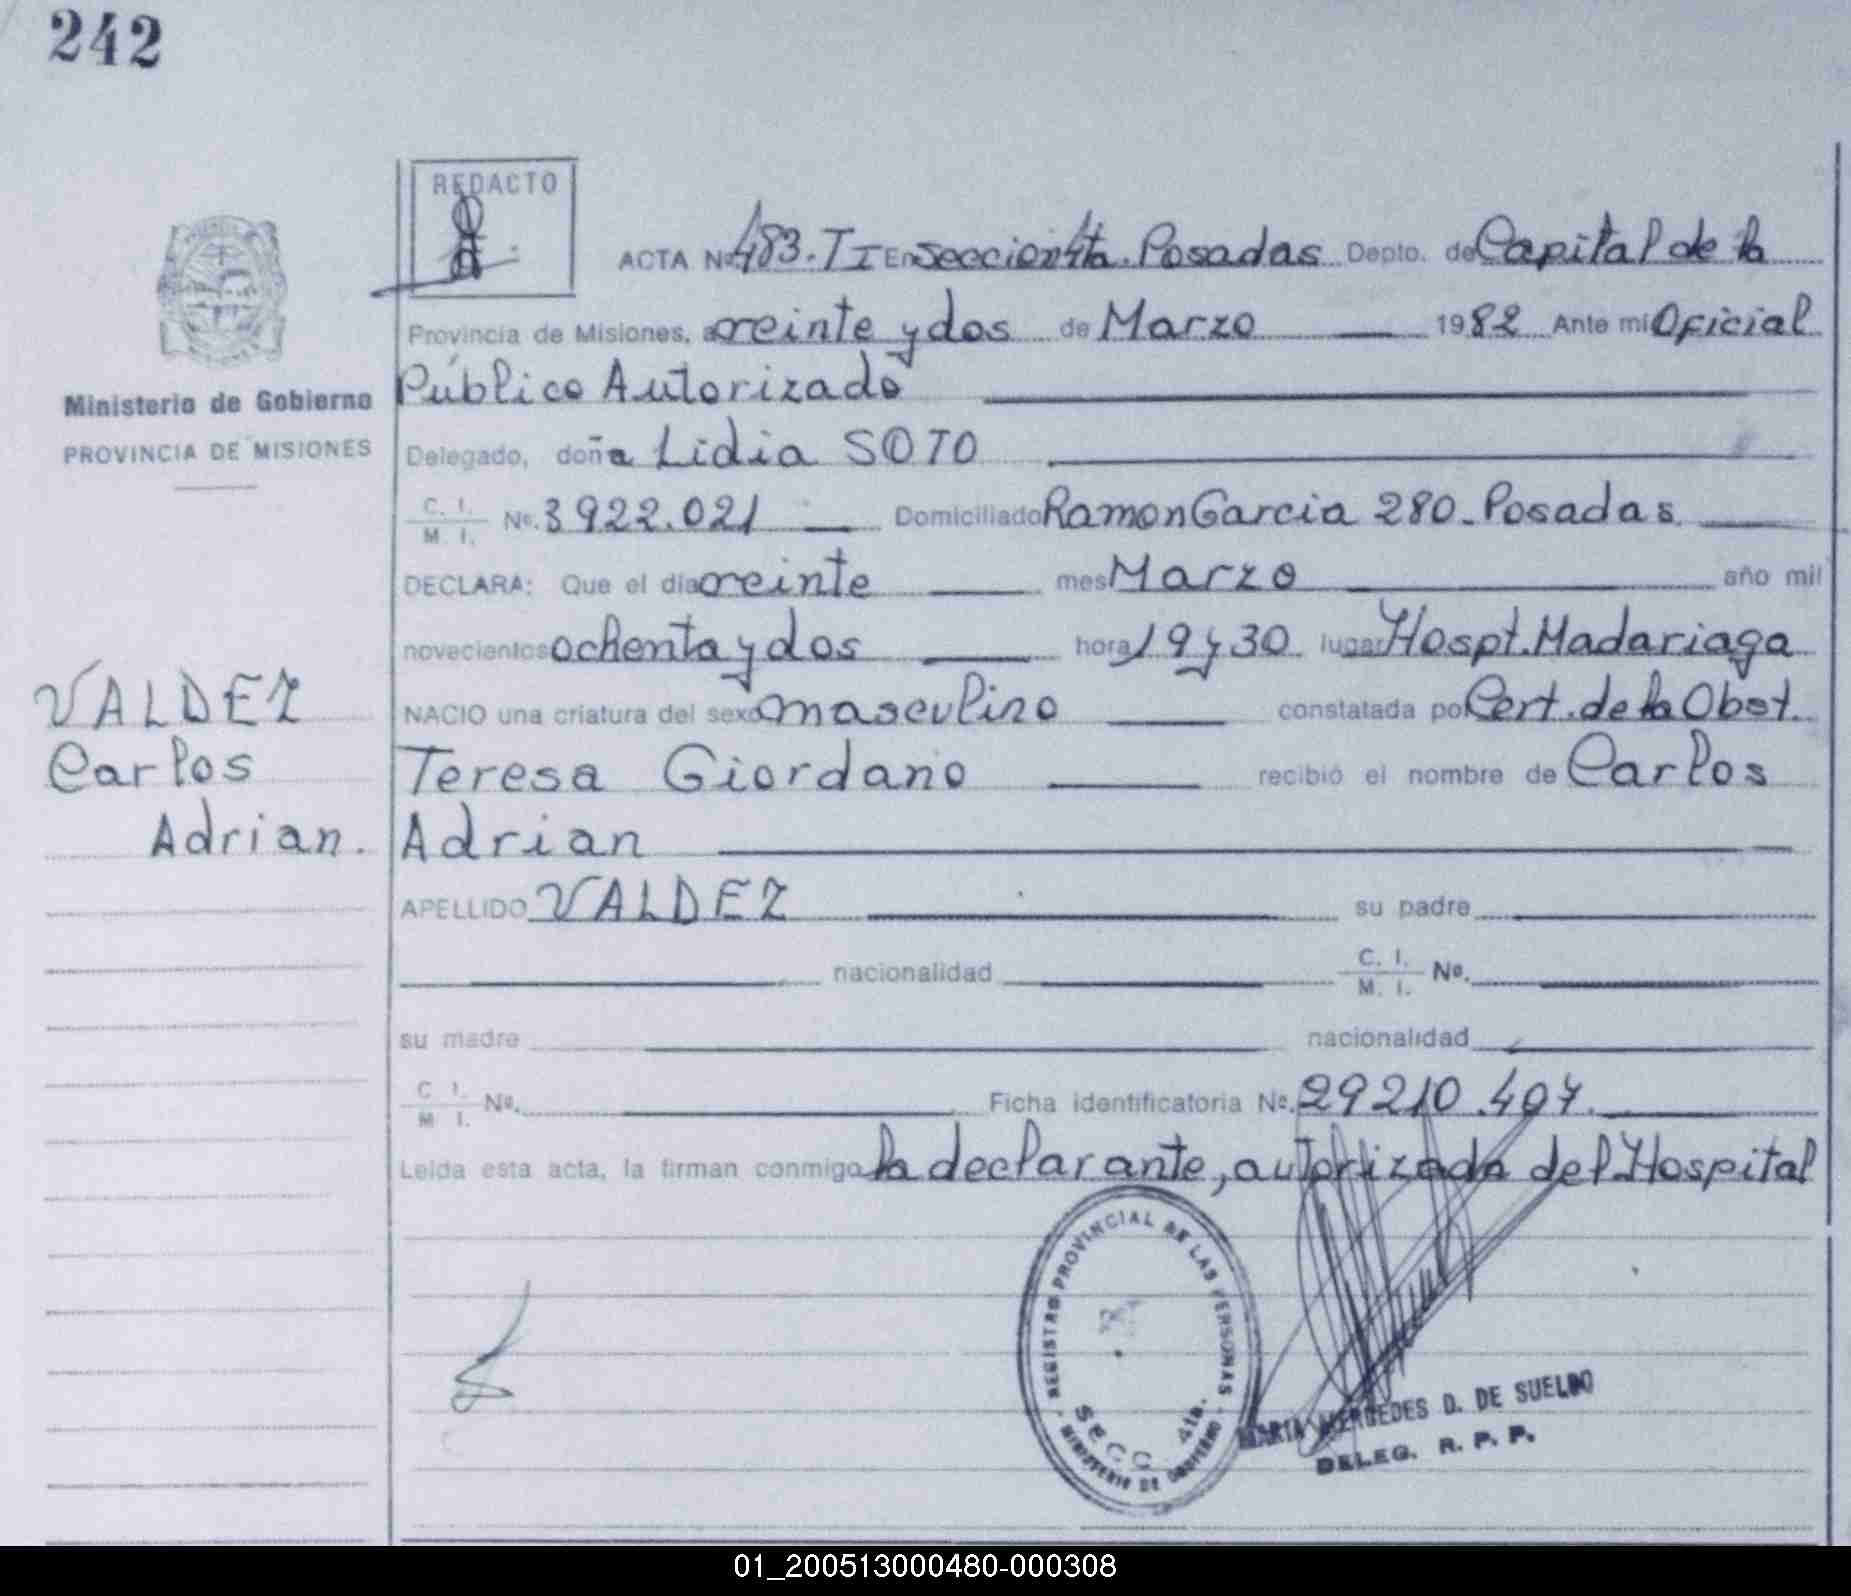 242
REDACTO
ACTA Nº 483. TI En Sección 4ta. Posadas Depto. de Capital de la
Provincia de Misiones, a veinte y dos de Marzo 1982 Ante mi Oficial
Ministerio de Gobierno
PROVINCIA DE MISIONES
Público Autorizado
Delegado, doña Lidia SOTO
C. I. M. I. Nº. 3922.021 Domiciliado Ramon Garcia 280. Posadas.
DECLARA: Que el día veinte mes Marzo año mil
novecientos ochenta y dos hora 19 y 30 lugar Hospt. Madariaga
NACIO una criatura del sexo masculino constatada por Cert. de la Obst.
Teresa Giordano recibió el nombre de Carlos
Adrian
VALDEZ
Carlos
Adrian.
APELLIDO VALDEZ su padre
nacionalidad C. I. M. I. Nº.
su madre nacionalidad
C. I. M. I. Nº. Ficha identificatoria Nº. 29210.407.
Leída esta acta, la firman conmigo la declarante, autorizada del Hospital
REGISTRO PROVINCIAL DE LAS PERSONAS
SECC 4ta.
MINISTERIO DE GOBIERNO
MARIA MERCEDES D. DE SUELDO
DELEG. R. P. P.
01_200513000480-000308